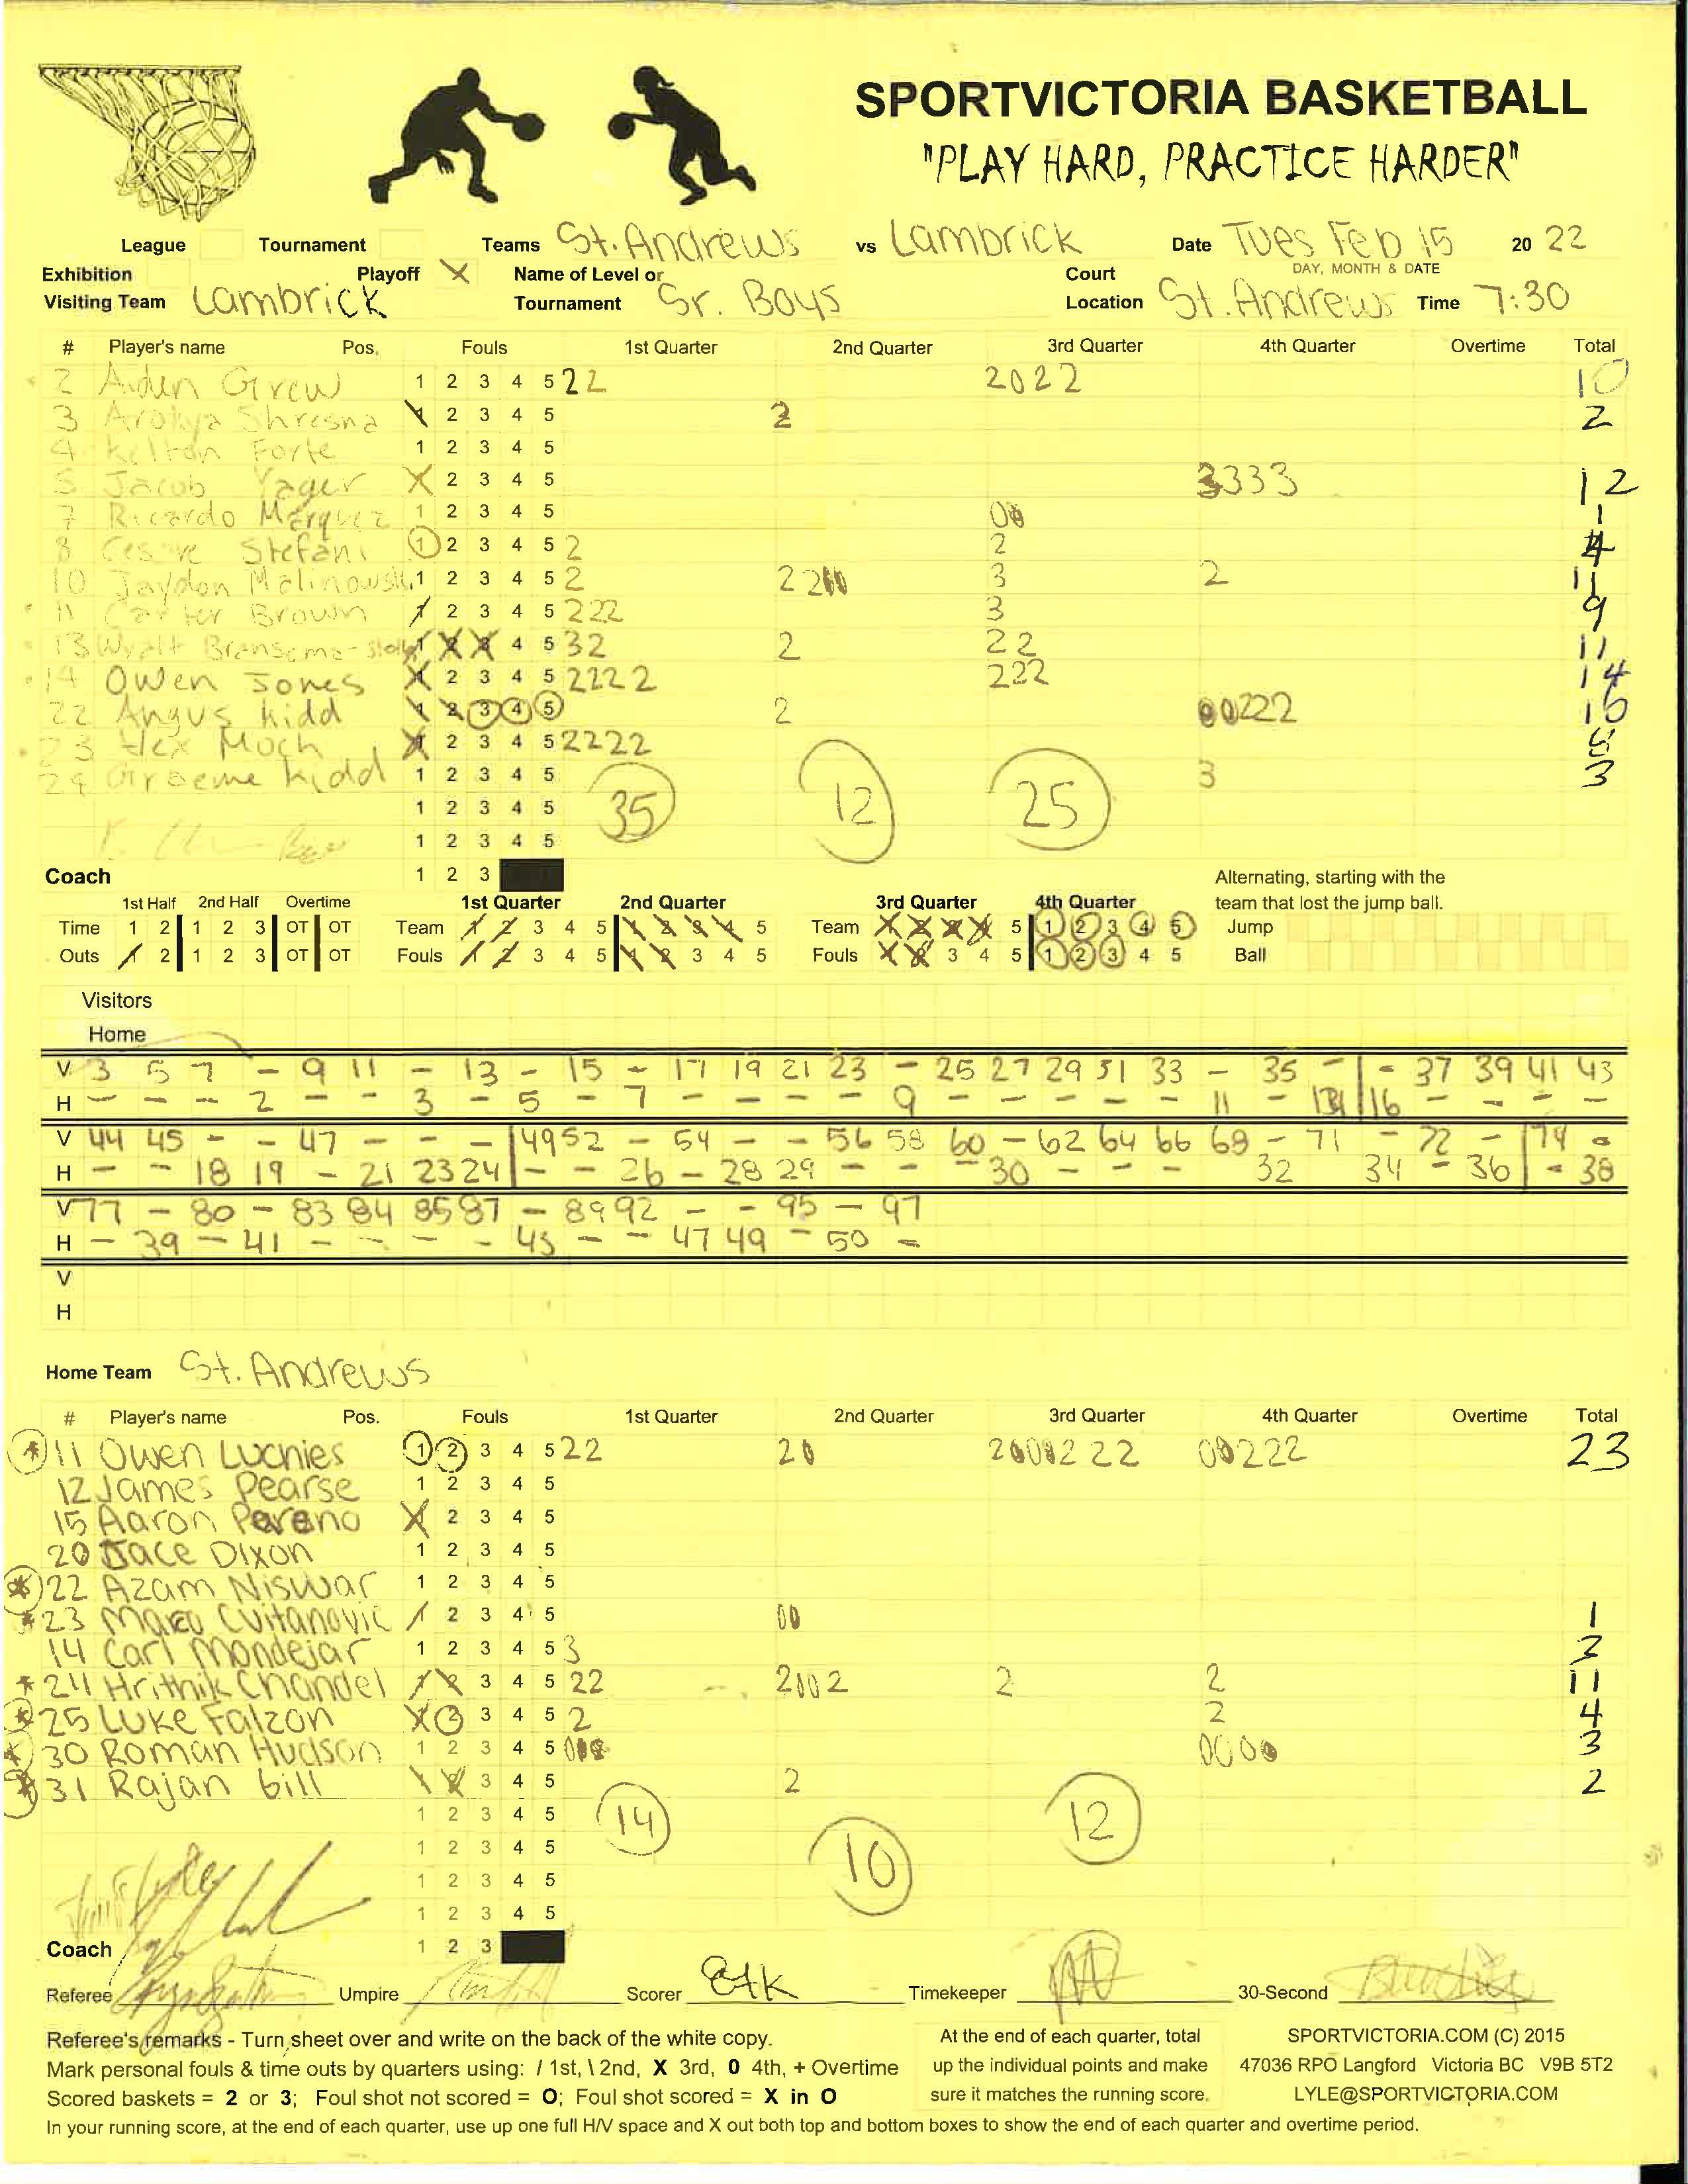 SPORTVICTORIA BASKETBALL
"PLAY HARD, PRACTICE HARDER"
League Tournament Teams St. Andrews vs Lambrick Date Tues Feb 15 20 22
Exhibition Playoff X Name of Level or Court DAY, MONTH & DATE
Visiting Team Lambrick Tournament Sr. Boys Location St. Andrews Time 7:30
# Player's name Pos. Fouls 1st Quarter 2nd Quarter 3rd Quarter 4th Quarter Overtime Total
2 Aiden Grew 1 2 3 4 5 22 2022 10
3 Shresna 1 2 3 4 5 2 2
4 Kelton Forte 1 2 3 4 5
5 Jacob Yager 1 2 3 4 5 3333 12
7 Ricardo Marquez 1 2 3 4 5 00 1
8 Stefani 1 2 3 4 5 2 2 4
10 Jaydon Malinowski 1 2 3 4 5 2 2200 3 2 11
11 Carter Brown 1 2 3 4 5 222 3 9
13 Wyatt 1 2 3 4 5 32 2 22 11
14 Owen Jones 1 2 3 4 5 2222 222 14
22 Angus Kidd 1 2 3 4 5 2 00222 10
23 Alex Moch 1 2 3 4 5 2222 8
24 Graeme Kidd 1 2 3 4 5 3 3
1 2 3 4 5 35 12 25
1 2 3 4 5
Coach 1 2 3 Alternating, starting with the
1st Half 2nd Half Overtime 1st Quarter 2nd Quarter 3rd Quarter 4th Quarter team that lost the jump ball.
Time 1 2 1 2 3 OT OT Team 1 2 3 4 5 1 2 3 4 5 Team 1 2 3 4 5 1 2 3 4 5 Jump
Outs 1 2 1 2 3 OT OT Fouls 1 2 3 4 5 1 2 3 4 5 Fouls 1 2 3 4 5 1 2 3 4 5 Ball
Visitors
Home
V 3 5 7 - 9 11 - 13 - 15 - 17 19 21 23 - 25 27 29 31 33 - 35 - - 37 39 41 43
H - - - 2 - - 3 - 5 - 7 - - - - 9 - - - - - 11 - 14 16 - - - -
V 44 45 - - 47 - - - 49 52 - 54 - - 56 58 60 - 62 64 66 69 - 71 - 72 - 74 -
H - - 18 19 - 21 23 24 - - 26 - 28 29 - - - 30 - - - 32 34 - 36 - 38
V 77 - 80 - 83 84 85 87 - 89 92 - - 95 - 97
H - 39 - 41 - - - - 45 - - 47 49 - 50 -
V
H
Home Team St. Andrews
# Player's name Pos. Fouls 1st Quarter 2nd Quarter 3rd Quarter 4th Quarter Overtime Total
11 Owen Lucnies 1 2 3 4 5 22 20 2000222 00222 23
12 James Pearse 1 2 3 4 5
15 Aaron Pereno 1 2 3 4 5
20 Jace Dixon 1 2 3 4 5
22 Azam Niswar 1 2 3 4 5
23 Marco Cvitanovic 1 2 3 4 5 00 1
14 Carl Mondejar 1 2 3 4 5 3 3
24 Hrithik Chandel 1 2 3 4 5 22 2002 2 2 11
25 Luke Falzon 1 2 3 4 5 2 2 4
30 Roman Hudson 1 2 3 4 5 000 0000 3
31 Rajan Gill 1 2 3 4 5 2 2
1 2 3 4 5 14 12
1 2 3 4 5 10
1 2 3 4 5
1 2 3 4 5
Coach 1 2 3
Referee Umpire Scorer Timekeeper 30-Second
Referee's remarks - Turn sheet over and write on the back of the white copy. At the end of each quarter, total SPORTVICTORIA.COM (C) 2015
Mark personal fouls & time outs by quarters using: / 1st, \ 2nd, X 3rd, 0 4th, + Overtime up the individual points and make 47036 RPO Langford Victoria BC V9B 5T2
Scored baskets = 2 or 3; Foul shot not scored = O; Foul shot scored = X in O sure it matches the running score. LYLE@SPORTVICTORIA.COM
In your running score, at the end of each quarter, use up one full H/V space and X out both top and bottom boxes to show the end of each quarter and overtime period.